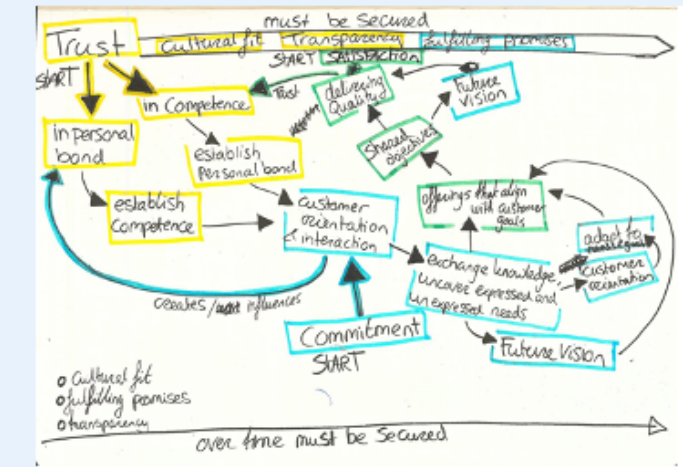 must be secured
Trust
Cultural fit Transparency fulfilling promises
START
START Satisfaction
in Competence
Trust
delivering
Quality
Future
vision
in personal
bond
establish
Personal bond
Shared
objectives
establish
competence
customer
orientation
& interaction
offerings that align
with customer
goals
adapt to
customer
orientation
exchange knowledge,
uncover expressed and
unexpressed needs
creates / influences
Commitment
START
Future Vision
o Cultural fit
o fulfilling promises
o transparency
over time must be secured